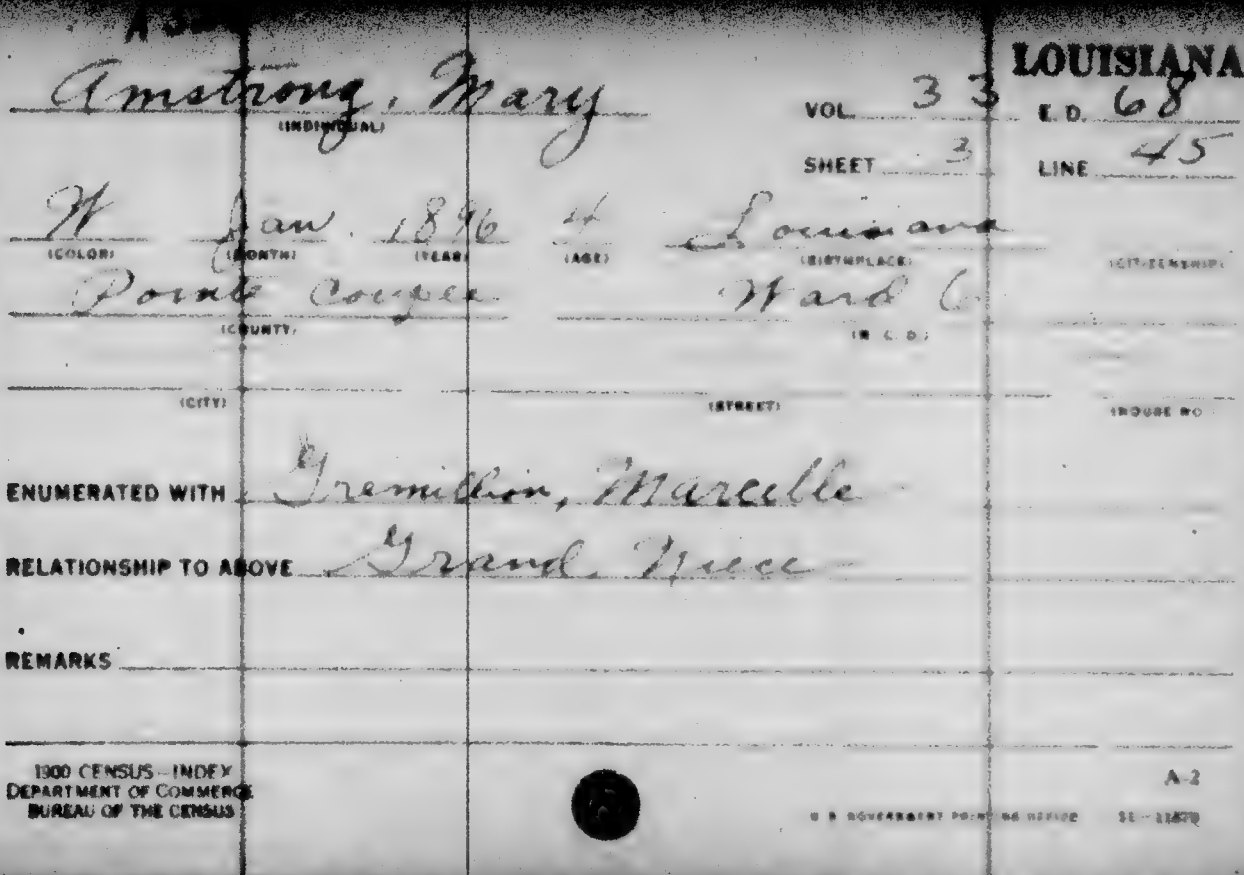 LOUISIANA
Amstrong, Mary
(INDIVIDUAL)
VOL. 33 E. D. 68
SHEET 3 LINE 45
W Jan. 1896 4 Louisiana
(COLOR) (MONTH) (YEAR) (AGE) (BIRTHPLACE) (CITIZENSHIP)
Pointe Coupee Ward 6
(COUNTY) (M. C. D.)
(CITY) (STREET) (HOUSE NO.
ENUMERATED WITH Gremillion, Marcelle
RELATIONSHIP TO ABOVE Grand Niece
REMARKS
1900 CENSUS—INDEX
DEPARTMENT OF COMMERCE
BUREAU OF THE CENSUS
A-2
U. S. GOVERNMENT PRINTING OFFICE